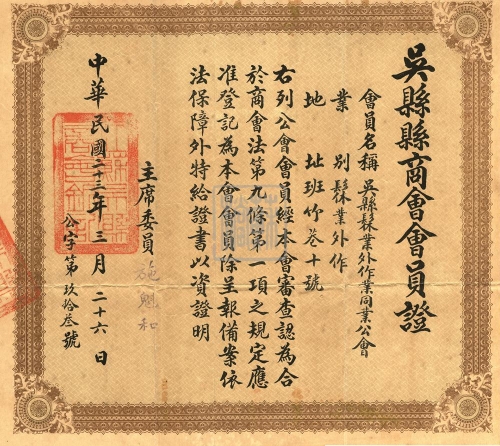 吳縣縣商會會員證
會員名稱 吳縣髹業外作業同業公會
業別 髹業外作
地址 班竹巷十號
右列公會會員經本會審查認為合
於商會法第九條第一項之規定應
准登記為本會會員除呈報備案依
法保障外特給證書以資證明
主席委員 施魁和
中華民國二十三年三月二十六日
公字第玖拾叁號